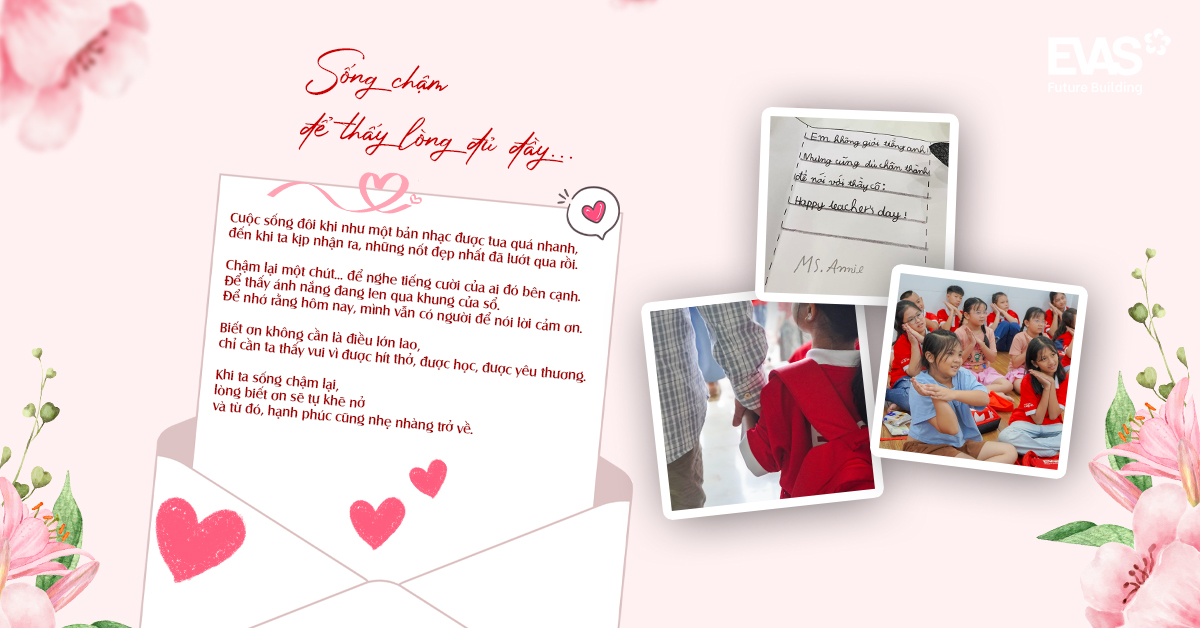 Sống chậm
để thấy lòng đủ đầy...
EVAS
Future Building
Cuộc sống đôi khi như một bản nhạc được tua quá nhanh,
đến khi ta kịp nhận ra, những nốt đẹp nhất đã lướt qua rồi.
Chậm lại một chút... để nghe tiếng cười của ai đó bên cạnh.
Để thấy ánh nắng đang len qua khung cửa sổ.
Để nhớ rằng hôm nay, mình vẫn có người để nói lời cảm ơn.
Biết ơn không cần là điều lớn lao,
chỉ cần ta thấy vui vì được hít thở, được học, được yêu thương.
Khi ta sống chậm lại,
lòng biết ơn sẽ tự khẽ nở
và từ đó, hạnh phúc cũng nhẹ nhàng trở về.
Em không giỏi tiếng anh
Nhưng cũng đủ chân thành
để nói với thầy cô:
Happy teacher's day!
MS. Annie